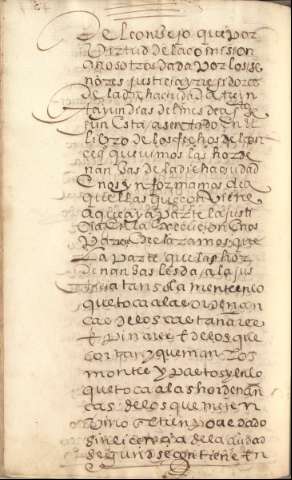 Del consejo que por
Virtud de la comission
a nosotros dada por los se
ñores justicia y regidores
de la dicha ciudad a trein
ta y un dias del mes de
sun esta asentado en el
libro de los fechos de
que vimos las horde
nanças de la dicha ciudad
E nos ynformamos de a
quellas que conviene
a que aya parte la justi
çia En la Execucion E nos
pareçe declaramos que
La parte que las hor
denanças les da a la jus
ticia tan solamente en lo
que toca a la ordenan
ca de los
E pinares E de los que
cortan y queman Los
montes y pastos y en lo
que toca a las hordenan
cas de los que meten
vino El tienpo vedado
sin licençia de la ciudad
segund se contiene En